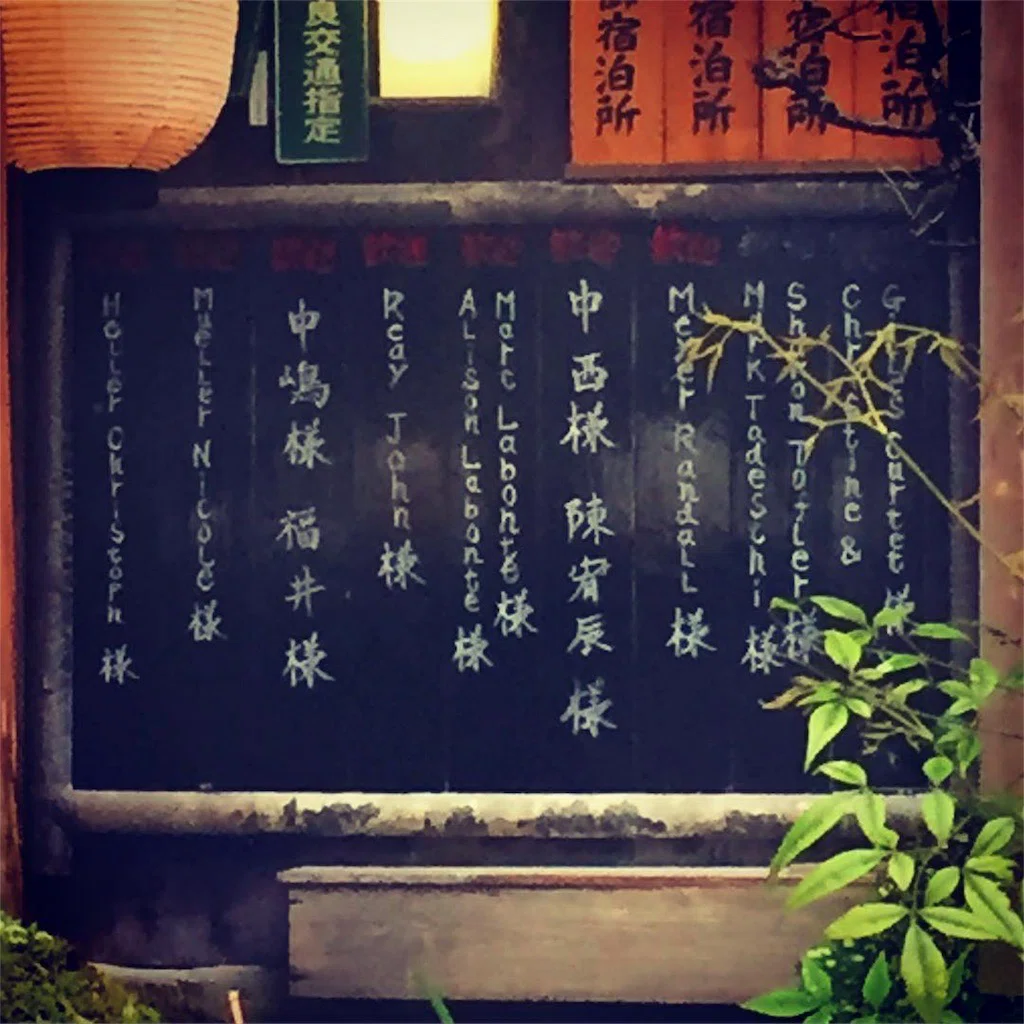 良交通指定
宿泊所
宿泊所
宿泊所
宿泊所
Curtet 様
Christine &
Sharon Tozler 様
Mark Tadeschi 様
Meyer Randall 様
中西様 陳宥辰様
Marc Labonté 様
Alison Labonté 様
Reay John 様
中嶋様 福井様
Mueller Nicole 様
Holer Christoph 様